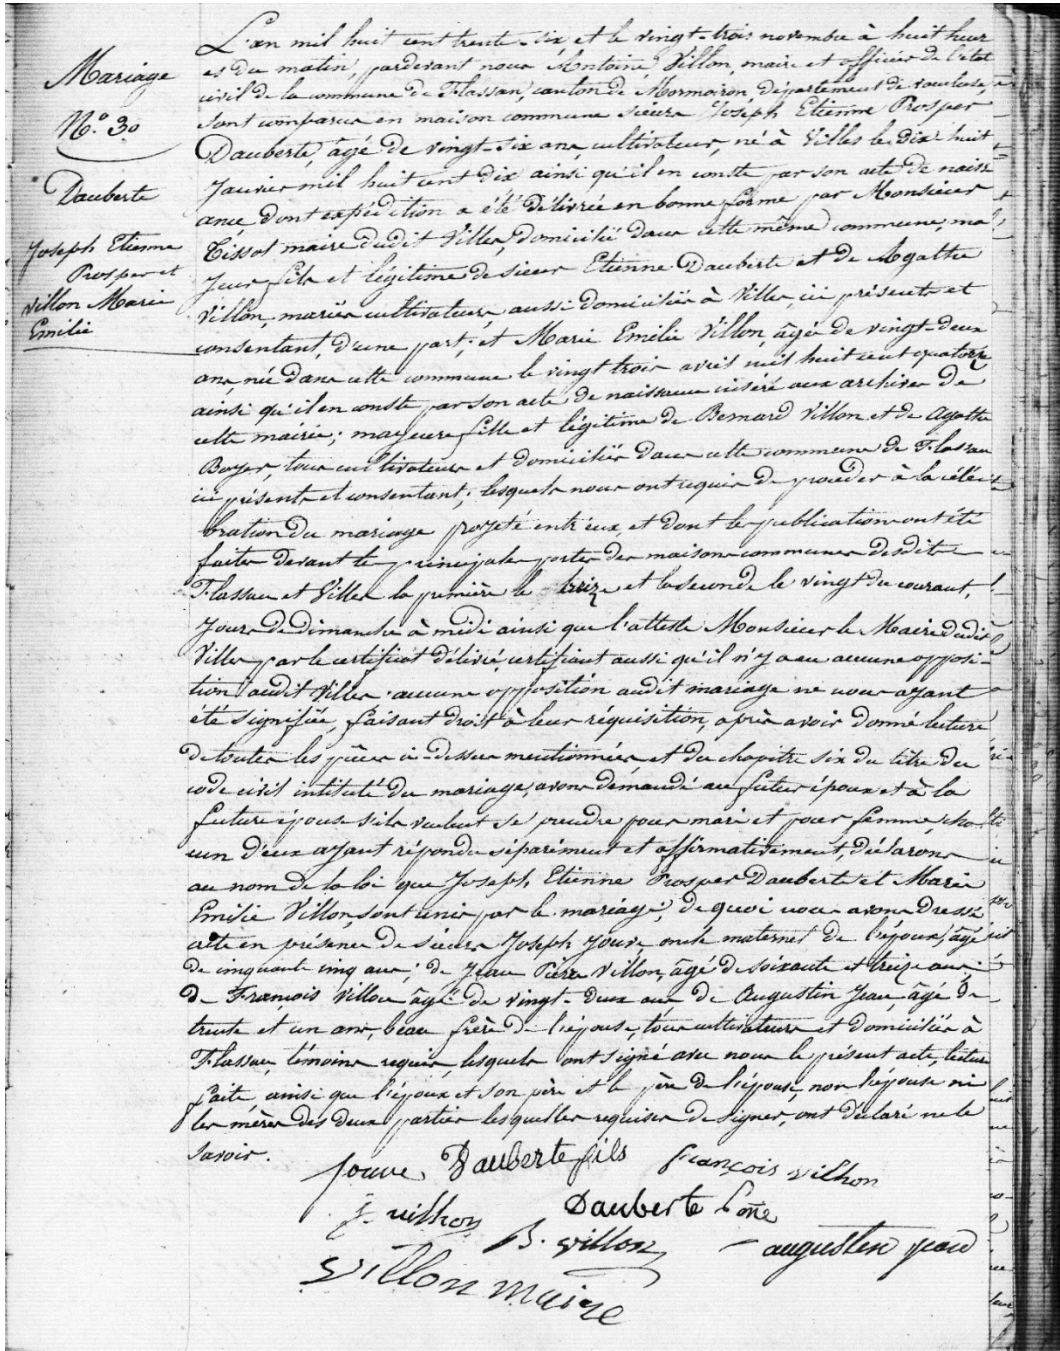 Mariage
N.o 30
Dauberte
Joseph Etienne
Prosper et
Villon Marie
Emilie
L'an mil huit cent trente-six et le vingt-trois novembre à huit heur
es du matin, pardevant nous Antoine Villon, maire et officier de l'état
civil de la commune de Flassan, canton de Mormoiron, département de vaucluse,
sont comparus en maison commune sieurs Joseph Etienne Prosper
Dauberte, âgé de vingt-six ans, cultivateur, né à Villes le dix huit
Janvier mil huit cent dix ainsi qu'il en conste par son acte de naiss
ance, dont expédition a été délivrée en bonne forme par Monsieur
Tissot maire dudit Villes, domicilié dans cette même commune, ma
jeur fils et légitime de sieur Etienne Dauberte et de Agathe
Villon, mariés cultivateurs, aussi domiciliés à Villes, ici présents et
consentant, d'une part; et Marie Emilie Villon, âgée de vingt-deux
ans, née dans cette commune le vingt trois avril mil huit cent quatorze
ainsi qu'il en conste par son acte de naissance inséré aux archives de
cette mairie; majeure fille et légitime de Bernard Villon et de Agathe
Boyer, tous cultivateurs et domiciliés dans cette commune de Flassan
ici présents et consentant; lesquels nous ont requis de procéder à la célé
bration du mariage projeté entr'eux, et dont les publications ont été
faites devant les principales portes des maisons communes desdits
Flassan et Villes la première le treize et la seconde le vingt du courant,
jours de dimanche à midi ainsi que l'atteste Monsieur le Maire dudit
Villes par le certificat délivré, certifiant aussi qu'il n'y a eu aucune opposi-
tion audit Villes. aucune opposition audit mariage ne nous ayant
été signifiée, faisant droit à leur réquisition, après avoir donné lecture
de toutes les pièces ci-dessus mentionnées, et du chapitre six du titre du
code civil intitulé du mariage, avons demandé au futur époux et à la
future épouse s'ils veulent se prendre pour mari et pour femme, cha-
cun d'eux ayant répondu séparément et affirmativement, déclarons
au nom de la loi que Joseph Etienne Prosper Dauberte et Marie
Emilie Villon, sont unis par le mariage; de quoi nous avons dressé
acte en présence de sieurs Joseph Jouve, oncle maternel de l'époux, âgé
de cinquante cinq ans; de Jean Pierre Villon, âgé de soixante et treize ans;
de François Villon âgé de vingt-deux ans de Augustin Jean, âgé de
trente et un ans, beau frère de l'épouse, tous cultivateurs et domiciliés à
Flassan, témoins requis, lesquels ont signé avec nous le présent acte, lecture
faite, ainsi que l'époux et son père et le père de l'épouse, non l'épouse ni
les mères des deux parties lesquelles requises de signer, ont déclaré ne le
savoir.
Jouve Dauberte fils françois vilhon
J. vilhon Dauberte Père
B. villon augusten jean
Villon maire